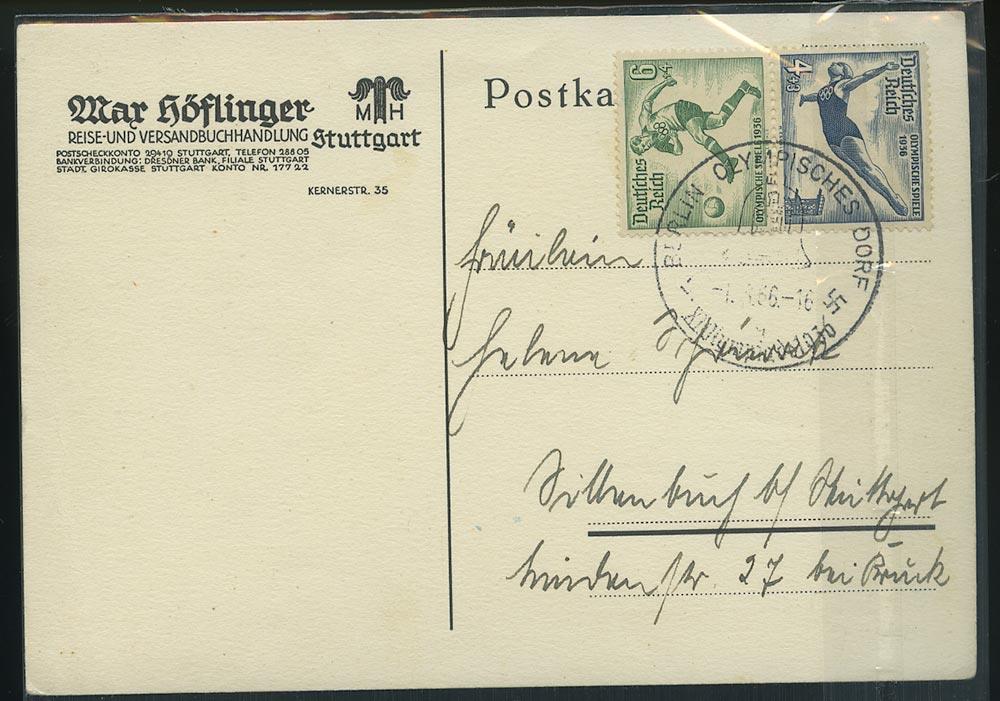 Max Höflinger
REISE-UND VERSANDBUCHHANDLUNG
M H
Stuttgart
POSTSCHECKKONTO 29410 STUTTGART, TELEFON 28805
BANKVERBINDUNG: DRESDNER BANK, FILIALE STUTTGART
STÄDT. GIROKASSE STUTTGART KONTO NR. 17722
KERNERSTR. 35
Postka
6+4
Deutsches Reich
OLYMPISCHE SPIELE 1936
4+3
Deutsches Reich
OLYMPISCHE SPIELE 1936
BERLIN OLYMPISCHES DORF
36.-16
Fräulein
Helene
Sillenbuch b/ Stuttgart
str. 27 bei Bruck